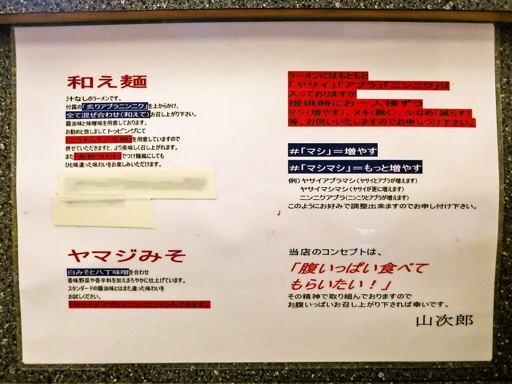 和え麺
汁なしのラーメンです。
付属の「炙りアブラニンニク」を上からかけ、
全て混ぜ合わせ(和えて)お召し上がり下さい。
醤油味と味噌味を用意しております。
お勧めと致しましてトッピングに
を用意していますので
併せていただきますと、より美味しく召し上がれます。
また でつけ麺風にしても
ひと味違った味わいをお楽しみいただけます。
ヤマジみそ
白みそと八丁味噌を合わせ
香味野菜や香辛料を加えまろやかに仕上げています。
スタンダードの醤油味とはまた違った味わいを
お試しください。
ラーメンにはもともと
「ヤサイ」「アブラ」「ニンニク」は
入っておりますが
提供時にお一人様ずつ
マシ(増やす)、ヌキ(除く)、少なめ(減らす)
等、お伺いいたしますのでお申し付け下さい。
#「マシ」=増やす
#「マシマシ」=もっと増やす
例)ヤサイアブラマシ(ヤサイとアブラが増えます)
ヤサイマシマシ(ヤサイが更に増えます)
ニンニクアブラ(ニンニクとアブラが増えます)
このようにお好みで調整出来ますのでお申し付け下さい。
当店のコンセプトは、
「腹いっぱい食べて
もらいたい!」
その精神で取り組んでおりますので
お腹いっぱいお召し上がり下されば幸いです。
山次郎